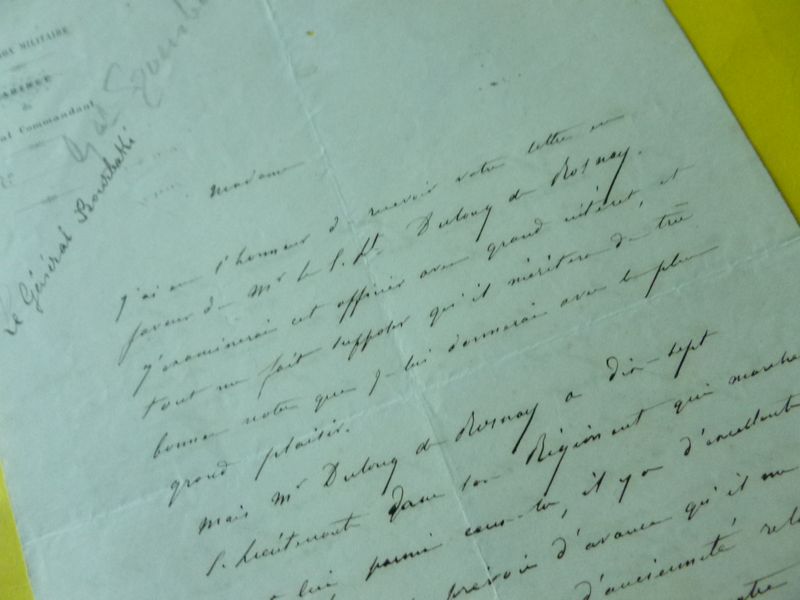 MILITAIRE
al Commandant
Gal Bourbaki
Le Général Bourbaki
Madame
J'ai eu l'honneur de recevoir votre lettre en
faveur de Mr le S. Lt Dulong de Rosnay.
J'examinerai cet officier avec grand intérêt, et
tout me fait supposer qu'il méritera de très
bonnes notes que je lui donnerai avec le plus
grand plaisir.
Mais Mr Dulong de Rosnay a dix-sept
S. Lieutenants dans son Régiment qui marchent
lui parmi ceux-là, il y a d'excellents
prévois d'avance qu'il me
d'ancienneté